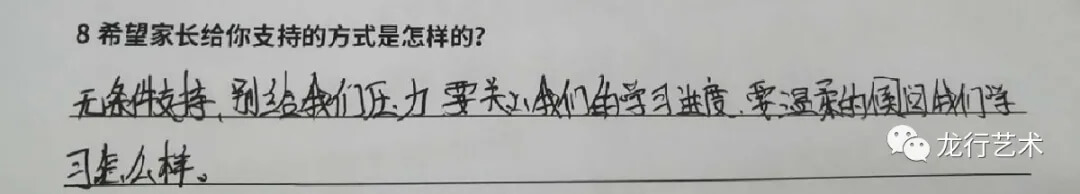 8 希望家长给你支持的方式是怎样的?
无条件支持,别给我们压力 要关心我们的学习进度.要温柔的询问我们学
习怎么样。
龙行艺术